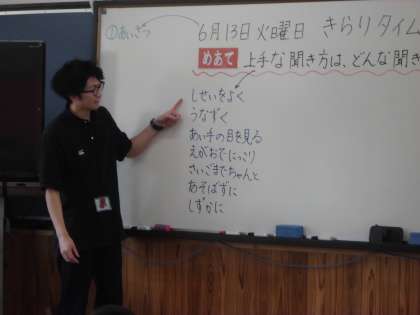 ①あいさつ
6月13日火曜日 きらりタイム
めあて 上手な聞き方は、どんな聞き
しせいをよく
うなずく
あい手の目を見る
えがおでにっこり
さいごまでちゃんと
あそばずに
しずかに